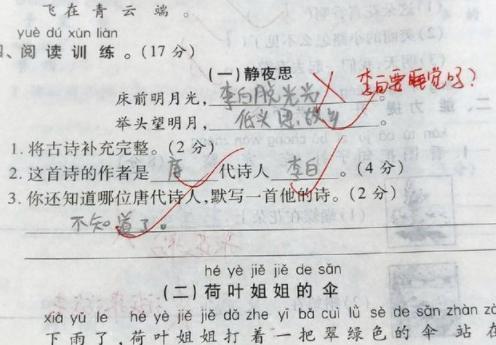 飞在青云端。
yuè dú xùn liàn
、阅读训练。(17分)
(一)静夜思
床前明月光,李白脱光光。
李白要睡觉吗?
举头望明月,低头思故乡
1.将古诗补充完整。(2分)
2.这首诗的作者是 唐 代诗人 李白 。(4分)
3.你还知道哪位唐代诗人,默写一首他的诗。(2分)
不知道了。
hé yè jiě jiě de sǎn
(二)荷叶姐姐的伞
xià yǔ le hé yè jiě jiě dǎ zhe yī bǎ cuì lǜ sè de sǎn zhàn zà
下雨了,荷叶姐姐打着一把翠绿色的伞站在